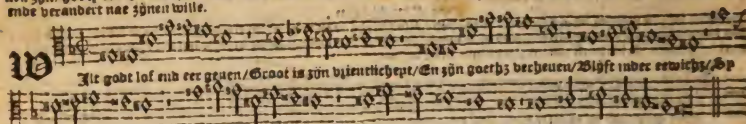 ende verandert nae zijnen wille.
WIlt godt lof end eer geuen/Groot is zijn vrientlicheyt/En zijn goetheyt verheuen/Blijft inder eewicheyt/Sp